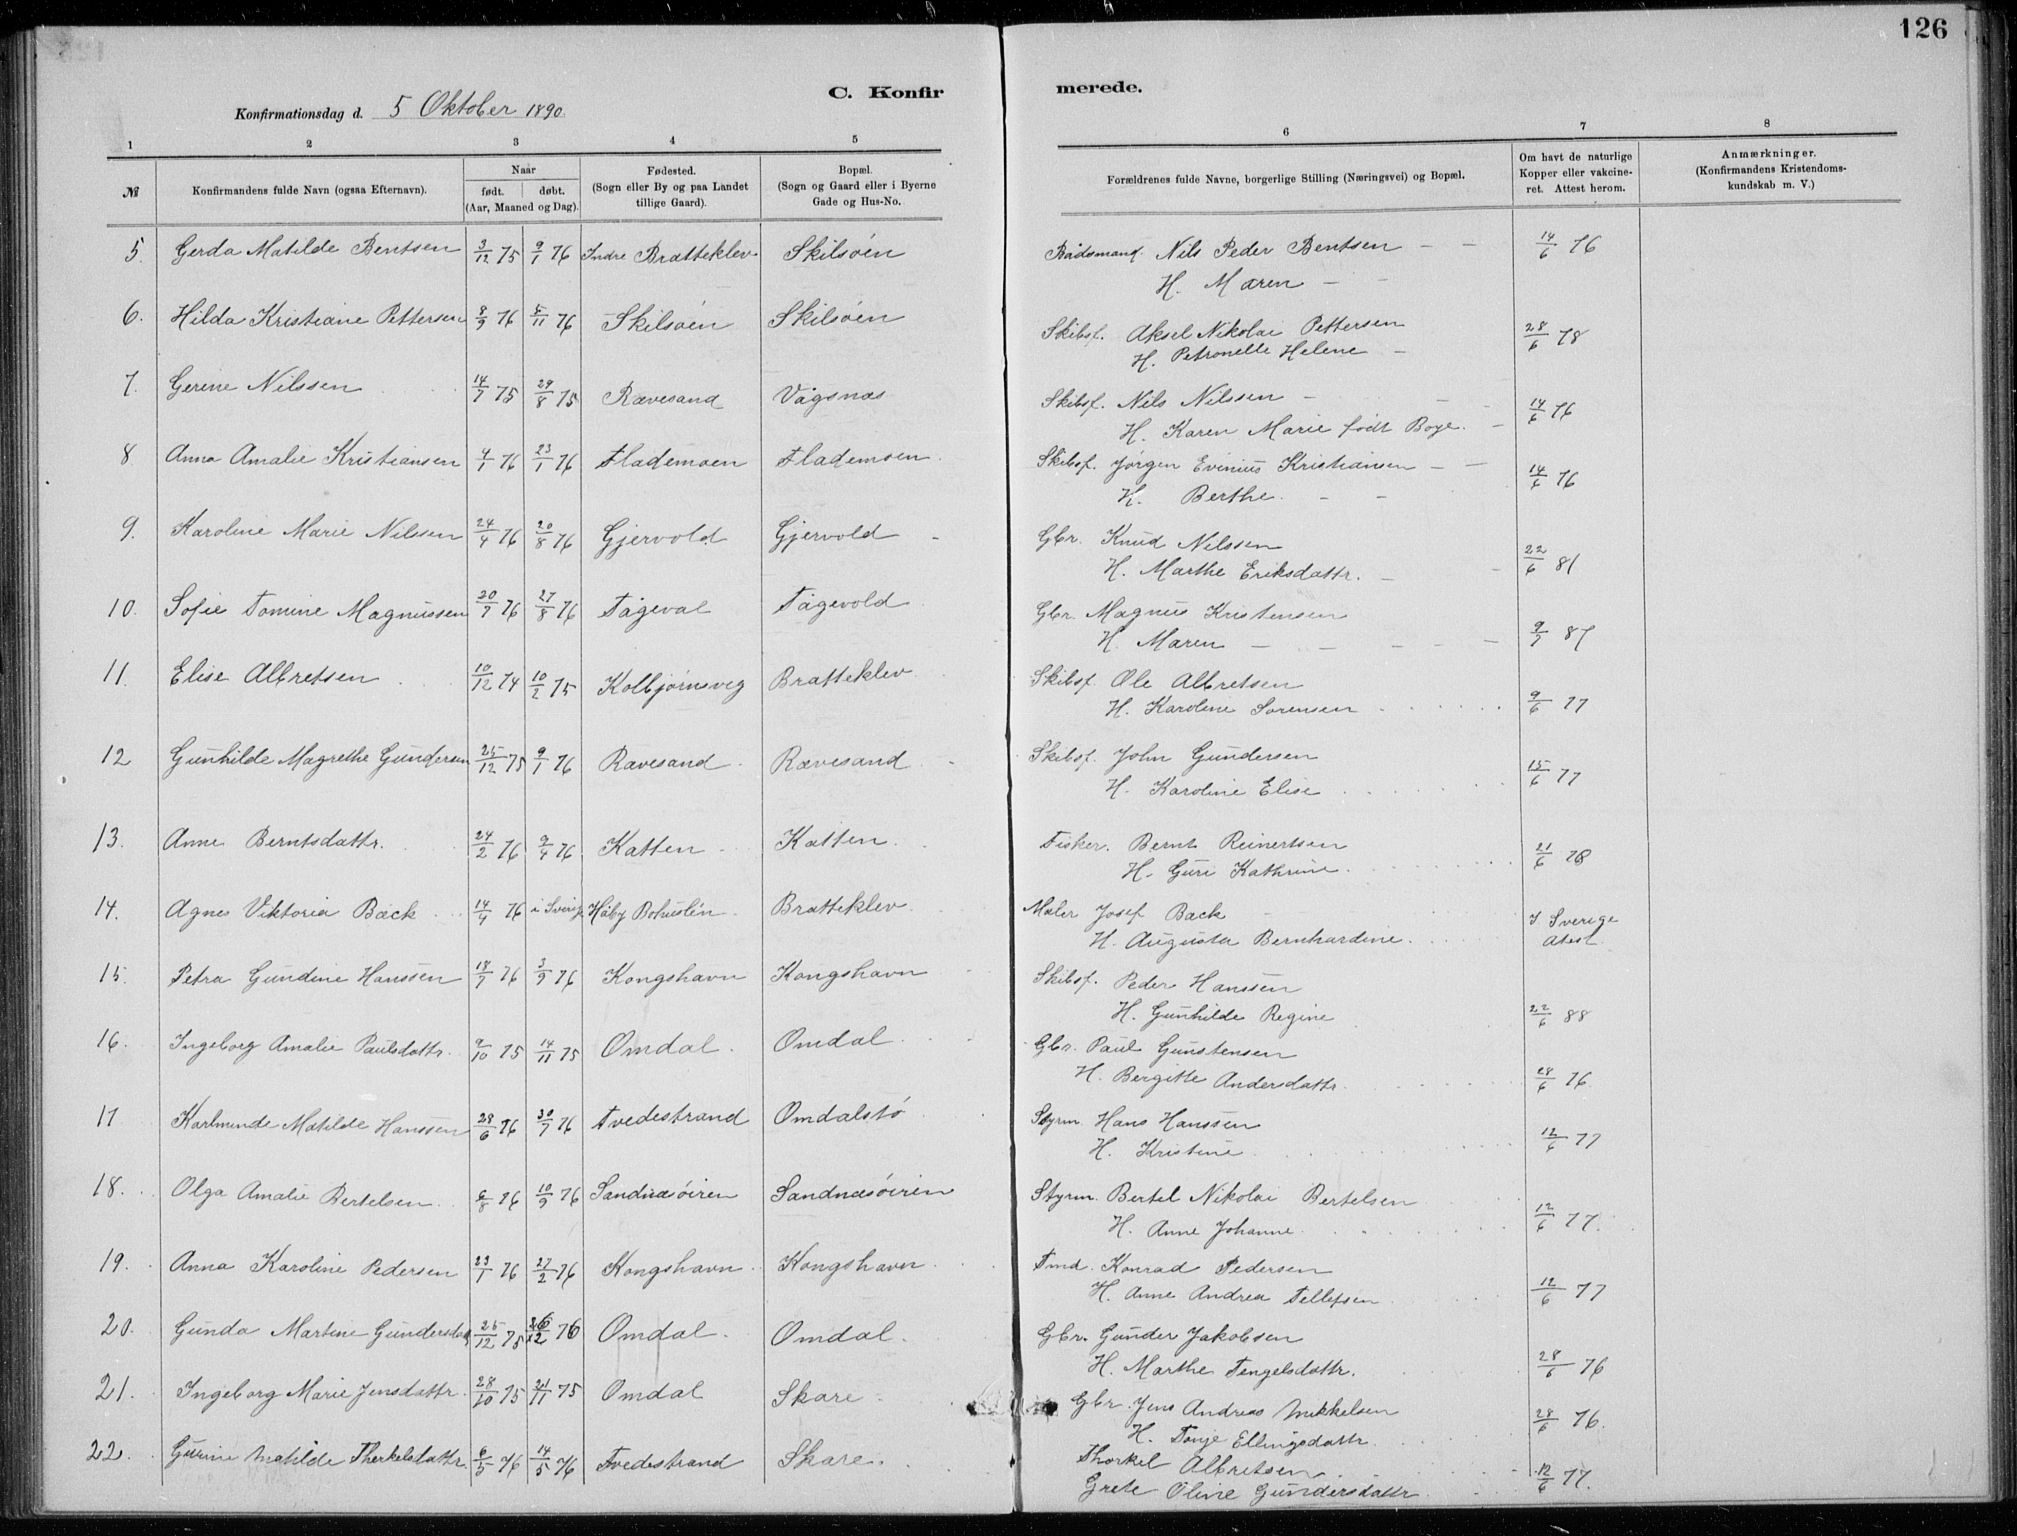 126
C. Konfirmerede.
Konfirmationsdag d. 5 Oktober 1890.
1 2 3 4 5 6 7 8
№ Konfirmandens fulde Navn (ogsaa Efternavn). Naar født. døbt. (Aar, Maaned og Dag). Fødested. (Sogn eller By og paa Landet tillige Gaard). Bopæl. (Sogn og Gaard eller i Byerne Gade og Hus-No. Forældrenes fulde Navne, borgerlige Stilling (Næringsvei) og Bopæl. Om havt de naturlige Kopper eller vakcineret. Attest herom. Anmærkninger. (Konfirmandens Kristendomskundskab m. V.)
5. Gerda Matilde Bentsen 3/12 75 9/1 76 Indre Bratteklev Skilsøen Baadsmand. Nils Peder Bentsen 14/6 76
H. Maren
6. Hilda Kristiane Pettersen 8/9 76 5/11 76 Skilsøen Skilsøen Skibsf. Aksel Nikolai Pettersen 28/6 78
H. Petronelle Helene
7. Gerine Nilssen 14/7 75 29/8 75 Rævesand Vågsnæs Skibsf. Nils Nilssen 14/6 76
H. Karen Marie født Boye.
8 Anna Amalie Kristiansen 4/1 76 23/1 76 Flademoen Flademoen Skibsf. Jørgen Evinius Kristiansen 14/6 76
H. Berthe.
9. Karoline Marie Nilssen 24/4 76 20/8 76 Gjervold Gjervold Gbr. Knud Nilssen 22/6 81
H. Marthe Eriksdattr.
10. Sofie Tomine Magnussen 20/7 76 27/8 76 Fågeval Fågevold Gbr. Magnus Kristensen 9/7 87
H. Maren
11. Elise Albretsen 10/12 74 10/2 75 Kolbjørnsveg Bratteklev Skibsf. Ole Albretsen 9/6 77
H. Karoline Sorensen
12 Gunhilde Magrethe Gundersen 25/12 75 9/1 76 Rævesand Rævesand Skibsf. John Gundersen 15/6 77
H. Karoline Elise
13. Anne Berntsdattr. 24/2 76 9/4 76 Katten Katten. Fisker. Bernt Reinertsen 21/6 78
H. Guri Kathrine.
14. Agnes Viktoria Back 14/4 76 i Sverig Håby Bohuslén Bratteklev Maler Josef Back I Sverige Atest
H. Augusta Bernhardine.
15. Petra Gundine Hanssen 18/7 76 3/9 76 Kongshavn Kongshavn Skibsf. Peder Hanssen 22/6 88
H. Gunhilde Regine
16. Ingeborg Amalie Paulsdattr. 9/10 75 14/11 75 Omdal. Omdal Gbr. Paul Gunstensen 28/6 76
H. Bergitte Andersdattr.
17 Karlminde Matilde Hanssen 28/6 76 30/7 76 Tvedestrand Omdalstø Styrm. Hans Hanssen 12/6 77
H. Kristine
18. Olga Amalie Bertelsen 6/8 76 10/9 76 Sandnæsøiren Sandnæsøiren Styrm. Bertel Nikolai Bertelsen 12/6 77.
H. Anne Johanne
19. Anna Karoline Pedersen 23/1 76 27/2 76 Kongshavn Kongshavn Tmd. Konrad Pedersen 12/6 77
H. Anne Andrea Tellefsen
20. Gunda Martine Gundersdatt 25/12 75 26/12 76 Omdal. Omdal. Gbr. Gunder Jakobsen 28/6 76
H. Marthe Tengelsdattr.
21. Ingeborg Marie Jensdattr. 28/10 75 21/11 75 Omdal Skare Gbr. Jens Andreas Mikkelsen 28/6 76.
H. Tonje Ellingsdattr.
22. Gurine Matilde Therkelsdattr. 6/3 76 14/5 76 Tvedestrand Skare. Thorkel Albretsen 12/6 77.
Grete Oline Gundersdattr